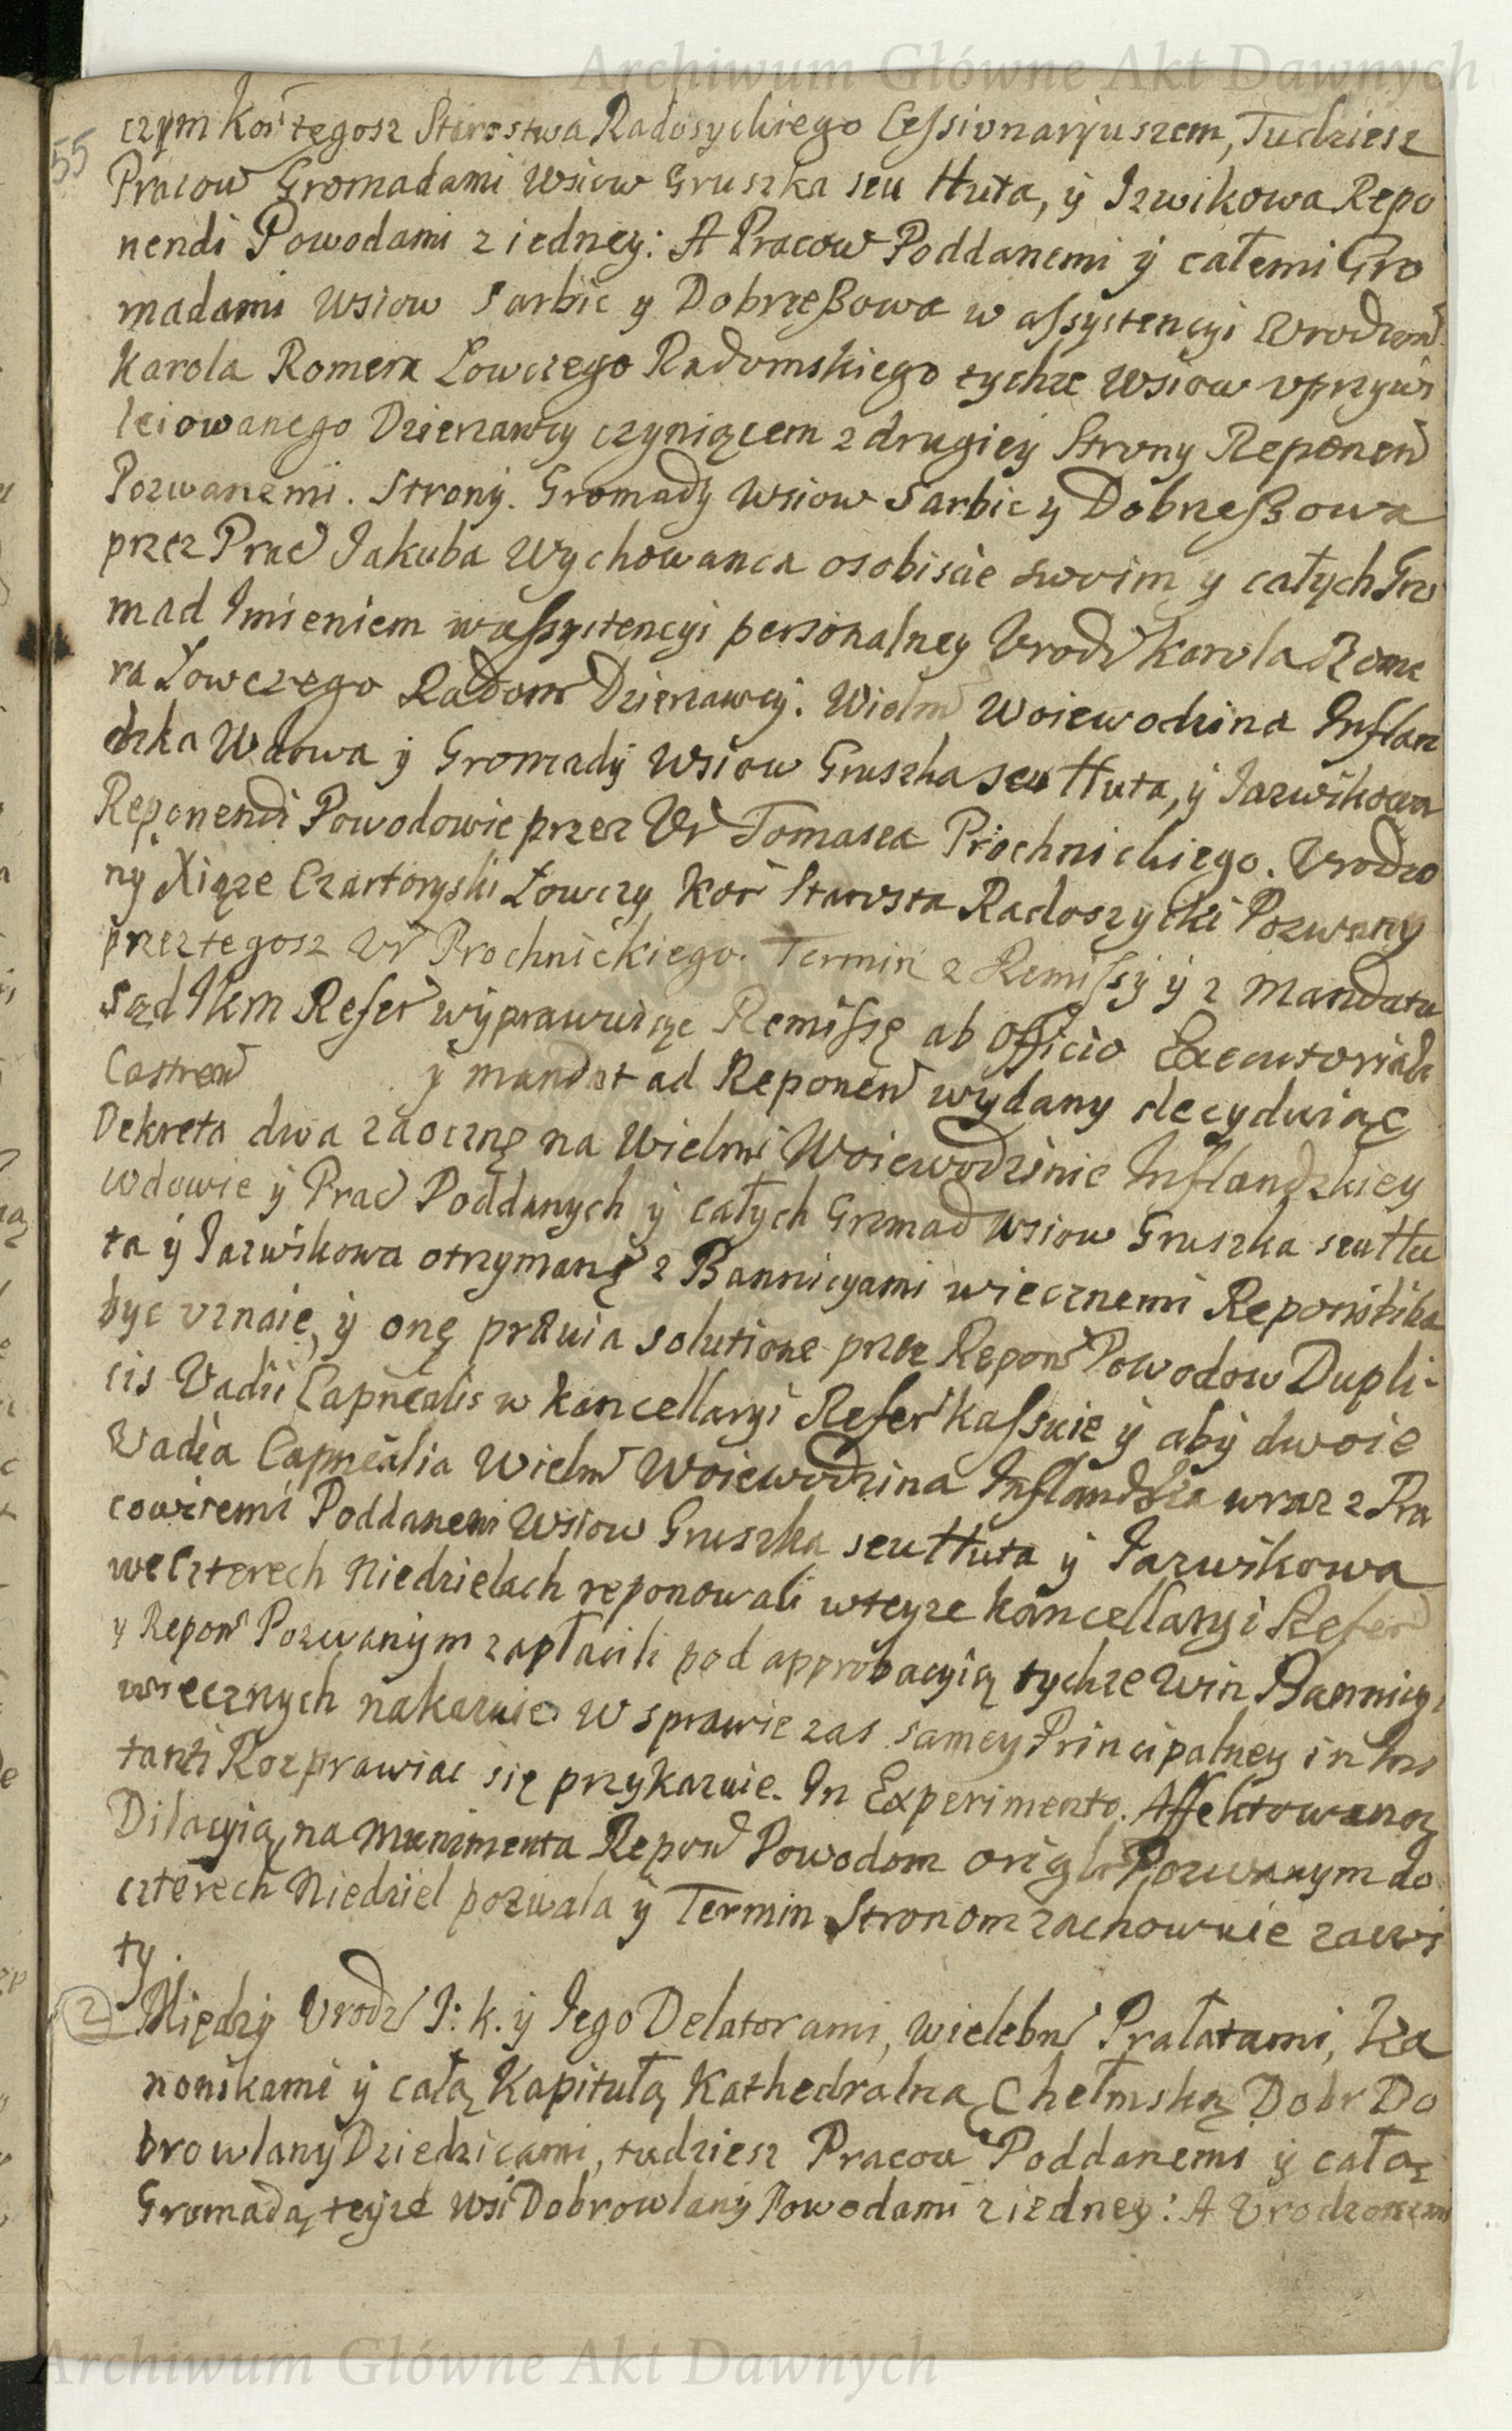 Archiwum Główne Akt Dawnych
55
czym Kor tegosz Starostwa Radosyckiego Cessionaryuszem, Tudziesz
Pracow Gromadami Wsiow Gruszka seu Huta, ÿ Izwikowa Repo
nendi Powodami z iedney: A Pracow Poddanemi ÿ całemi Gro
madami Wsiow Sarbic y Dobrzeszowa w assystencyi Vrodzon
Karola Romera Łowczego Radomskiego tychze Wsiow vprzywi
leiowanego Dzierzawcy czyniącem z drugiey Strony Reponen
Pozwanemi. Strony. Gromady Wsiow Sarbic y Dobrzeszowa
przez Prac Jakuba Wychowanca osobiscie swoim y całych Gro
mad Imieniem w assystencyi personalney Vrodz Karola Rome
ra Łowczego Radom Dzierzawcy. Wielm Woiewodzina Inflan
dzka Wdowa ÿ Gromady Wsiow Gruszka seu Huta, ÿ Jazwikowa
Reponendi Powodowie przez Vr Tomasza Prochnickiego. Vrodzo
ny Xiąze Czartoryski Łowczy Kor Starosta Radoszycki Pozwany
przez tegosz Vr Prochnickiego. Termin z Remissy ÿ z Mandatu
Sąd JKM Refer wyprawuiące Remissę ab Officio Executoriali
Castren ÿ mandat ad Reponen wydany decyduiąc
Dekreta dwa zaocznę na Wielm Woiewodzinie Inflandzkiey
wdowie ÿ Prac Poddanych ÿ całych Gromad Wsiow Gruszka seu Hu
ta ÿ Jazwikowa otrzymanę z Bannicyami wiecznemi Reponibilia
byc vznaie, ÿ onę prævia solutione przez Repon Powodow Dupli-
cis Vadii Capnealis w Kancellaryi Refer kassuie ÿ aby dwoie
Vadia Capnealia Wielm Woiewodzina Inflandzka wraz z Pra
cowitemi Poddanemi Wsiow Gruszka seu Huta ÿ Jazwikowa
we Czterech Niedzielach reponowali w teyze Kancellaryi Refer
y Repon Pozwanym zapłacili pod approbacyią tychze Win Bannicyi
wiecznych nakazuie. W sprawie zas samey Principalney in Ins
tanti Rozprawiac się przykazuie. In Experimento. Affektowaną
Dilacyią na Munimenta Repon Powodom origli Pozwanym do
czterech Niedziel pozwala ÿ Termin Stronom zachowuie zawi
ty.
2 Między Vrodz I: K. ÿ Iego Delatorami, Wielebn Prałatami, Ka
nonikami ÿ całą Kapitułą Kathedralną Chełmską Dobr Do
browlany Dziedzicami, tudziesz Pracow Poddanemi ÿ całą
Gromadą teyze Wsi Dobrowlany Powodami z iedney: A Vrodzonemi
Archiwum Główne Akt Dawnych